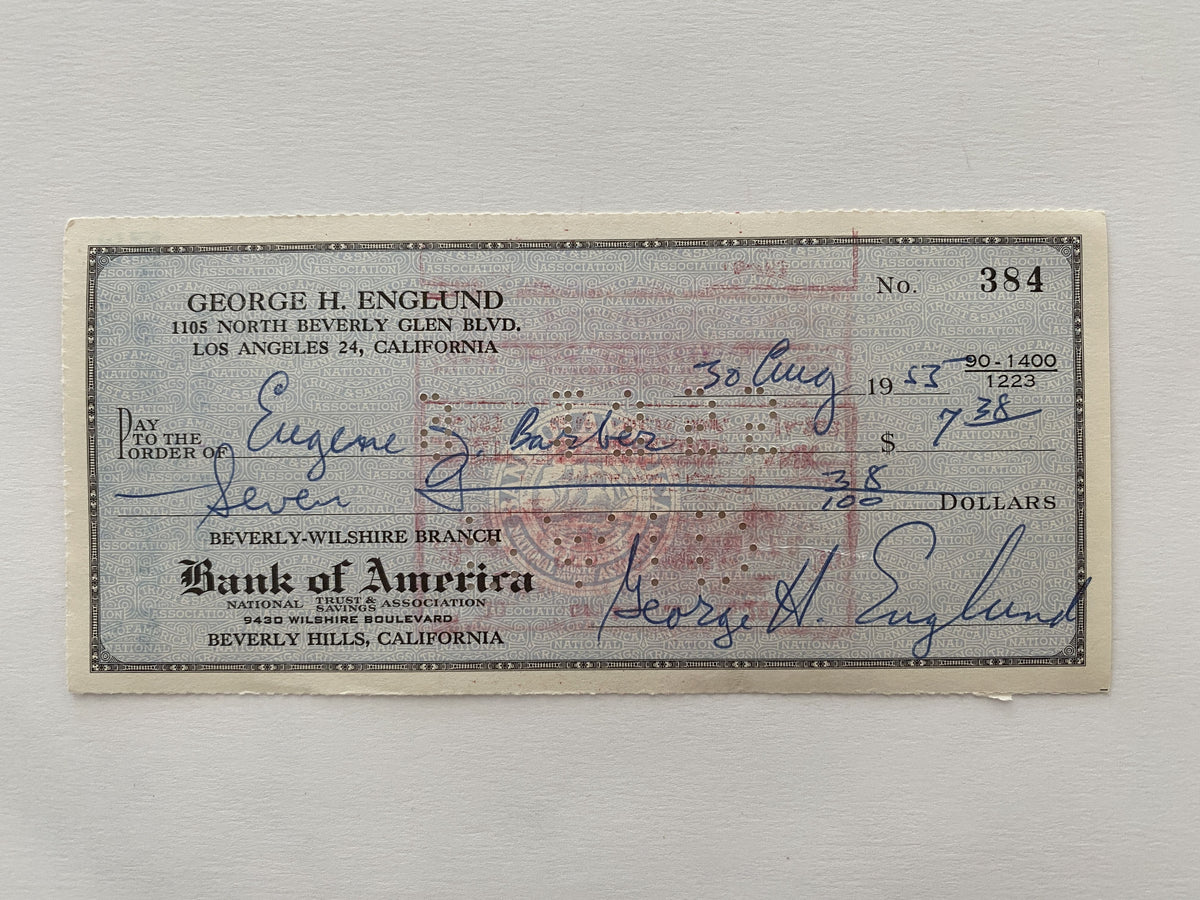 GEORGE H. ENGLUND
1105 NORTH BEVERLY GLEN BLVD.
LOS ANGELES 24, CALIFORNIA
No. 384
30 Aug 1955
90-1400
1223
PAY TO THE ORDER OF Eugene J. Barber $ 7 38
Seven 38/100 DOLLARS
BEVERLY-WILSHIRE BRANCH
Bank of America
NATIONAL TRUST & SAVINGS ASSOCIATION
9430 WILSHIRE BOULEVARD
BEVERLY HILLS, CALIFORNIA
George H. Englund